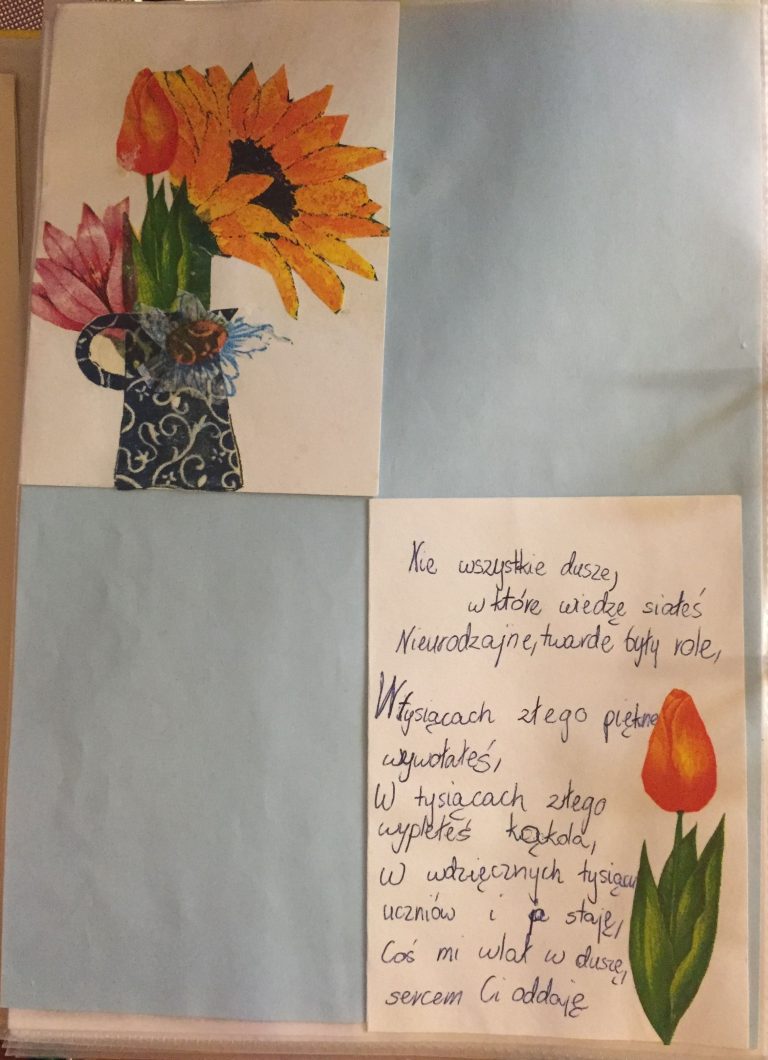 Nie wszystkie dusze,
w które wiedzę siałeś
Nieurodzajne, twarde były role,
W tysiącach złego piękne
wywołałęś,
W tysiącach złego
wyplełeś kąkola,
W wdzięcznych tysiącu
uczniów i ja staję,
Coś mi wlał w duszę,
sercem Ci oddaję